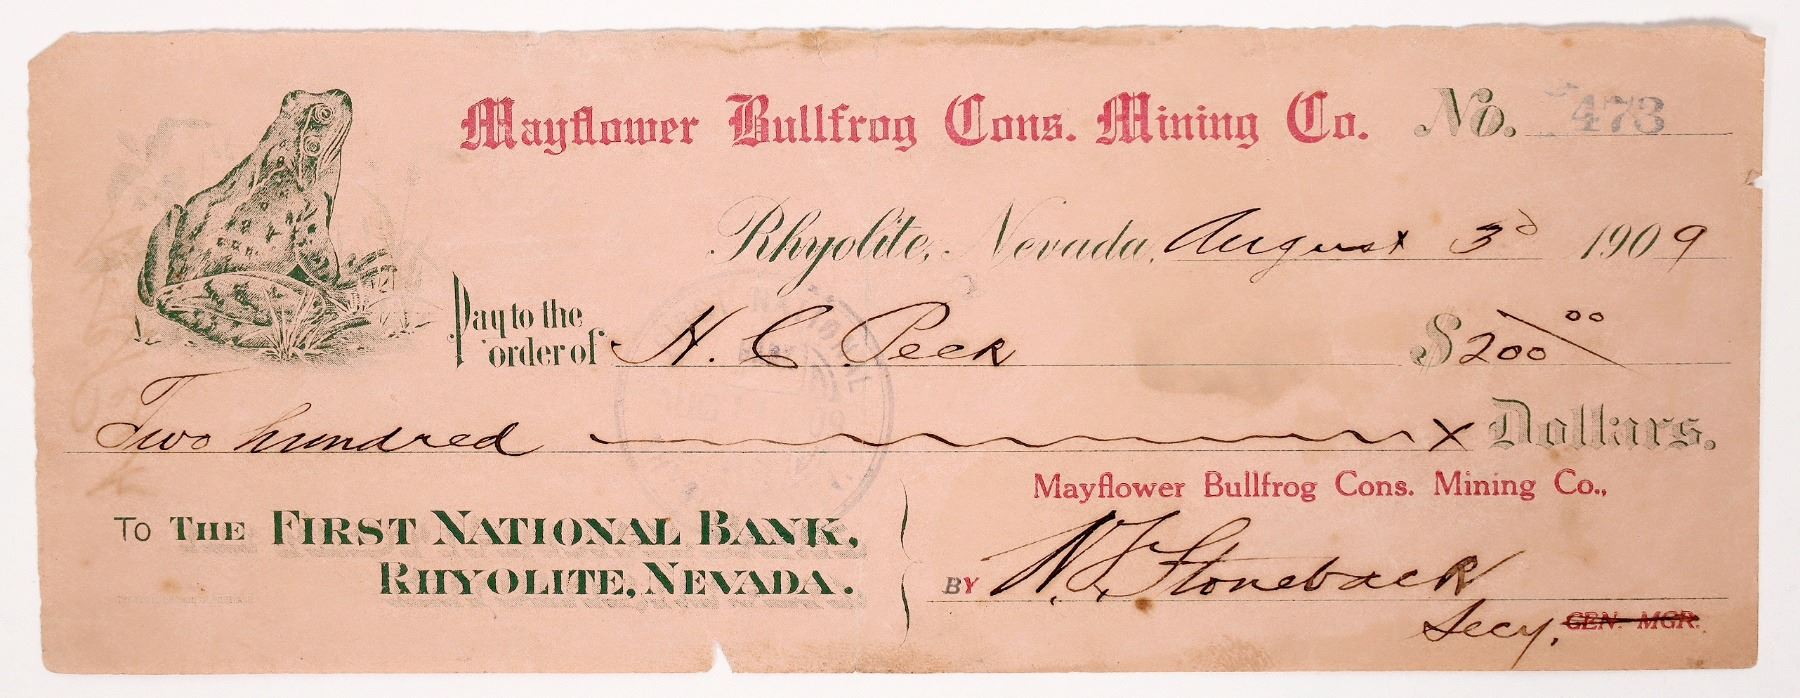 Mayflower Bullfrog Cons. Mining Co. No. 473
Rhyolite, Nevada, August 3d 1909
Pay to the
order of H. C. Peck $200 00
Two hundred x Dollars.
Mayflower Bullfrog Cons. Mining Co.,
To The First National Bank,
Rhyolite, Nevada.
By N. F. Stoneback
Secy. Gen. Mgr.